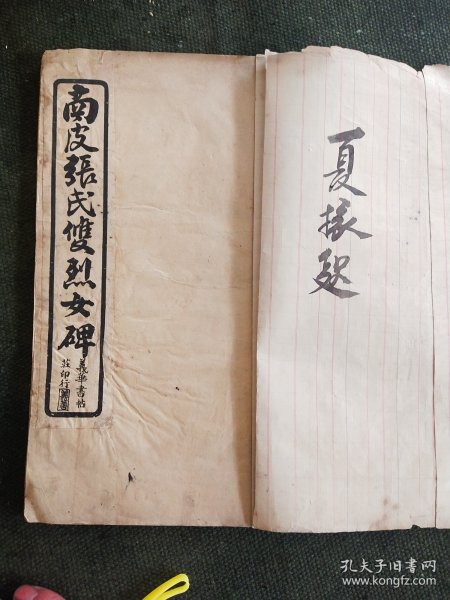 南皮張氏雙烈女碑
義華書帖
莊印行
夏振
孔夫子旧书网
www.kongfz.com